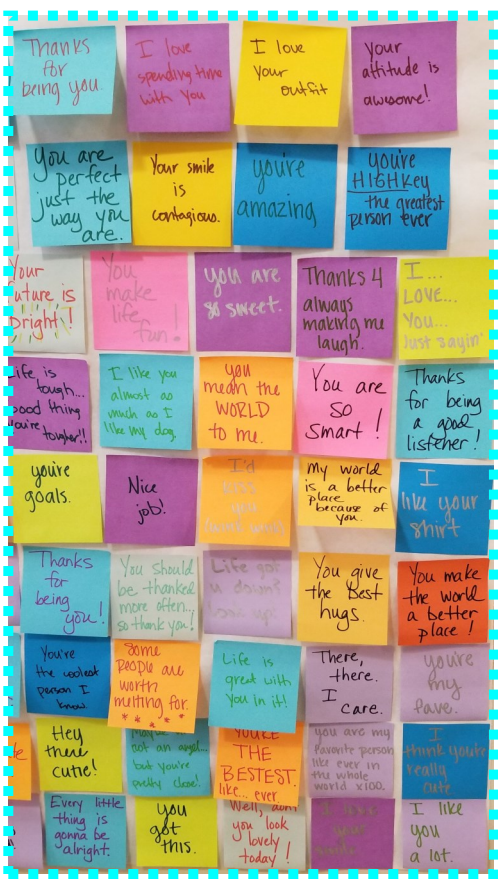 Thanks
for
being you.
I love
spending time
with you
I love
your
outfit
your
attitude is
awesome!
you are
perfect
just the
way you
are.
Your smile
is
contagious.
you're
amazing
you're
HIGHKey
the greatest
person ever
Your
future is
bright!
You
make
life
fun!
you are
so sweet.
Thanks 4
always
making me
laugh.
I...
LOVE...
You...
Just sayin'
Life is
tough...
good thing
you're tougher!!
I like you
almost as
much as I
like my dog.
you
mean the
WORLD
to me.
You are
so
smart!
Thanks
for being
a good
listener!
you're
goals.
Nice
job!
I'd
miss
you
My world
is a better
place
because of
you.
I
like your
shirt
Thanks
for
being
you!
You should
be thanked
more often...
so thank you!
Life got
u down?
You give
the Best
hugs.
You make
the world
a better
place!
You're
the coolest
person I
know.
Some
people are
worth
melting for.
Life is
great with
You in it!
There,
there.
I
care.
you're
my
fave.
Hey
there
cutie!
Maybe
not an angel...
but you're
pretty close!
YOU'RE
THE
BESTEST.
like... ever
you are my
favorite person
like ever in
the whole
world x100.
I
think you're
really
cute
Every little
thing is
gonna be
alright.
you
got
this.
Well, don't
you look
lovely
today!
I love
your
I like
you
a lot.